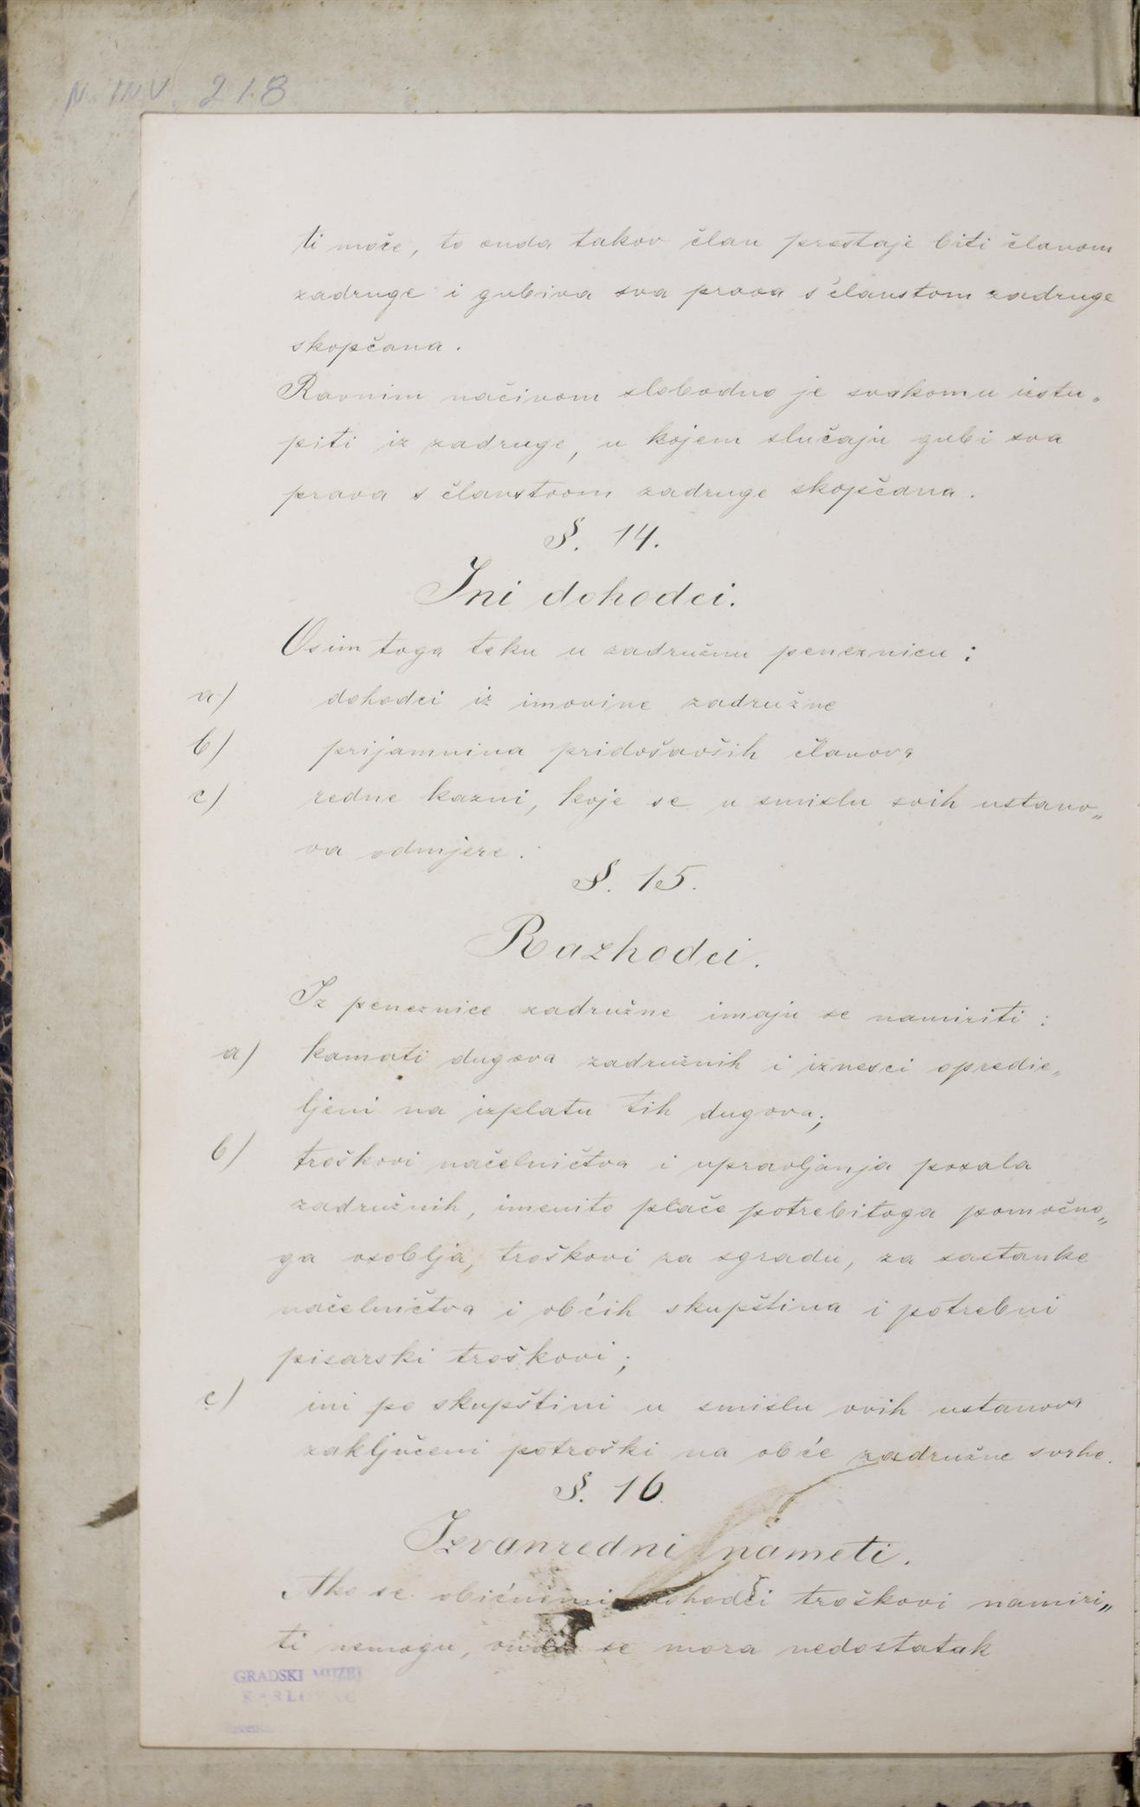 N. INV. 218
ti može, to onda takov član prestaje biti članom
zadruge i gubiva sva prava s članstom zadruge
skopčana.
Ravnim načinom slobodno je svakomu istu„
piti iz zadruge, u kojem slučaju gubi sva
prava s članstvom zadruge skopčana.
§. 14.
Ini dohodci.
Osim toga teku u zadružnu peneznicu:
a) dohodci iz imovine zadružne
b) prijamnina pridošavših članova
c) redne kazni, koje se u smislu ovih ustano„
va odmjere.
§. 15.
Razhodci.
Iz peneznice zadružne imaju se namiriti:
a) kamati dugova zadružnih i iznesci opredie„
ljeni na izplatu tih dugova;
b) troškovi načelničtva i upravljanja posala
zadružnih, imenito plaće potrebitoga pomoćno„
ga osoblja, troškovi za sgradu, za sastanke
načelničtva i obćih skupština i potrebni
pisarski troškovi;
c) ini po skupštini u smislu ovih ustanova
zaključeni potroški na obće zadružne svrhe.
§. 16.
Izvanredni nameti.
Ako se običnimi dohodci troškovi namiri„
ti nemogu, onda se mora nedostatak
GRADSKI MUZEJ
KARLOVAC